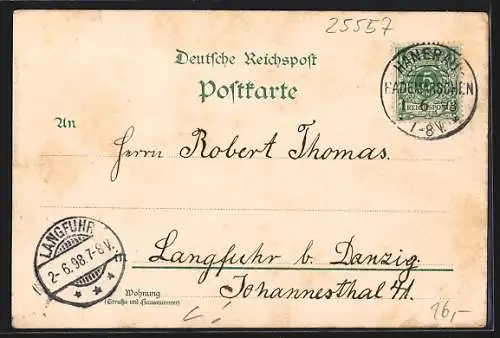 25557
Deutsche Reichspost
Postkarte
HANERAU
HADEMARSCHEN
1 6 98
7-8V.
5
REICHSPOST
An
Herrn Robert Thomas.
LANGFUHR
2-6.98.7-8V.
Langfuhr b. Danzig.
Johannesthal 41.
Wohnung
(Straße und Hausnummer)
16,-